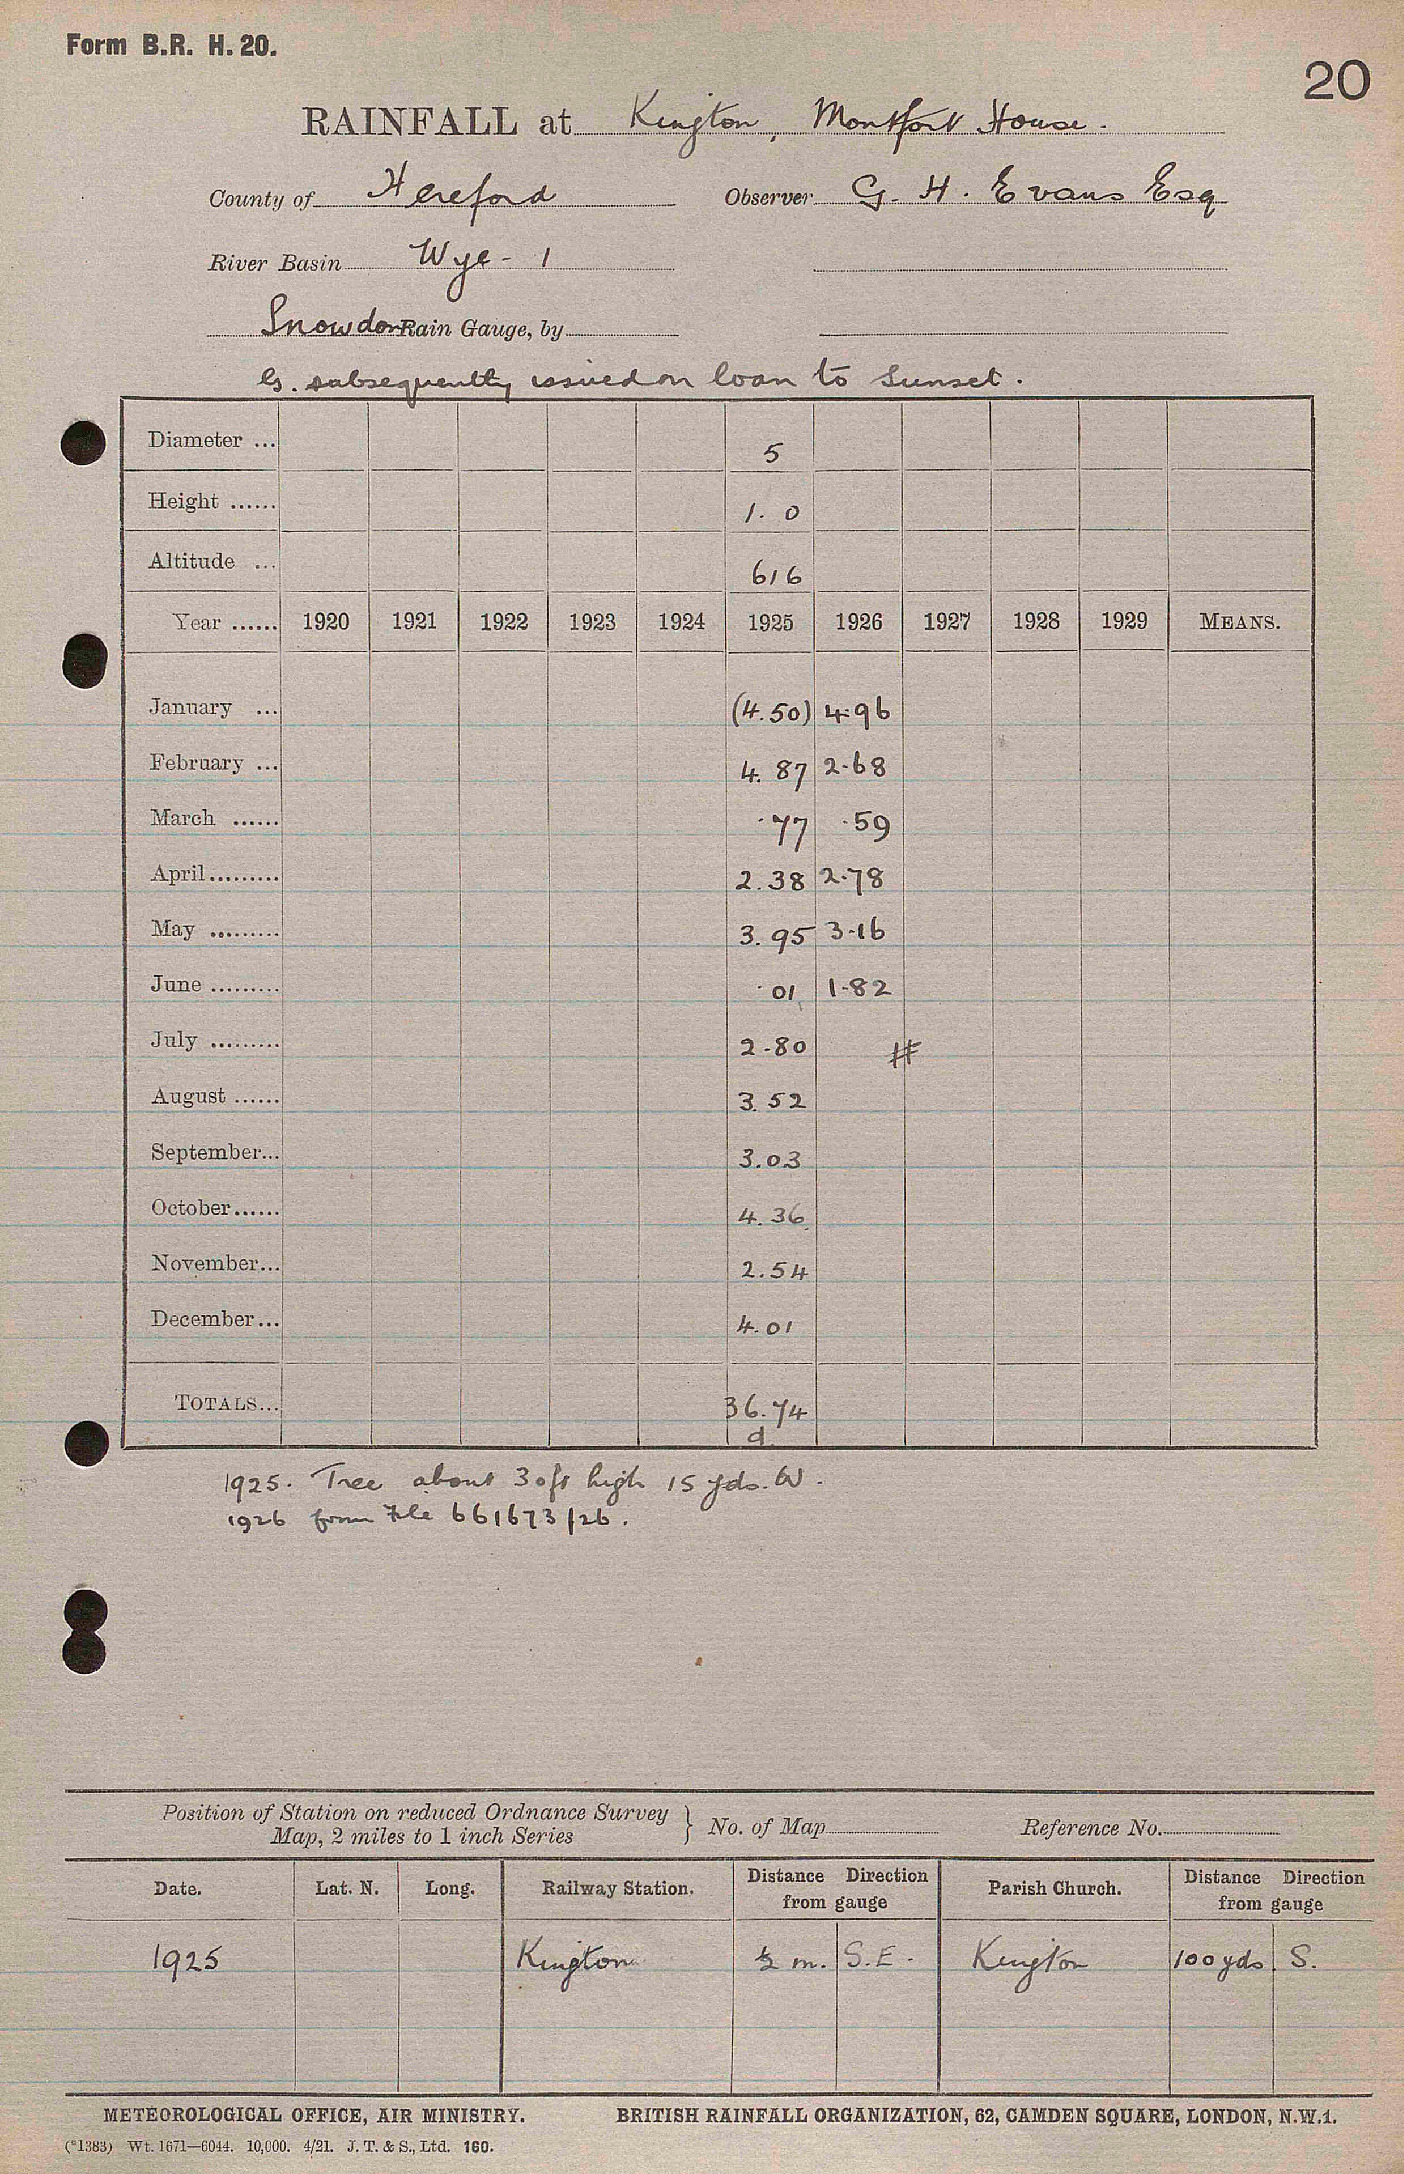 Form B.R. H. 20.
20
RAINFALL at Kington, Montfort House.
County of Hereford Observer G. H. Evans Esq
River Basin Wye - 1
Snowdon Rain Gauge, by
G. subsequently issued on loan to Sunset.
Diameter ... 5
Height ...... 1. 0
Altitude ... 616
Year ...... 1920 1921 1922 1923 1924 1925 1926 1927 1928 1929 MEANS.
January ... (4.50) 4.96
February ... 4.87 2.68
March ...... .77 .59
April ......... 2.38 2.78
May ......... 3.95 3.16
June ......... .01 1.82
July ......... 2.80 #
August ...... 3.52
September... 3.03
October...... 4.36
November... 2.54
December... 4.01
TOTALS... 36.74
d
1925. Tree about 30ft high 15 yds. W.
1926 from File 661673/26.
Position of Station on reduced Ordnance Survey } No. of Map Reference No.
Map, 2 miles to 1 inch Series
Date. Lat. N. Long. Railway Station. Distance Direction from gauge Parish Church. Distance Direction from gauge
1925 Kington ½ m. S.E. Kington 100 yds. S.
METEOROLOGICAL OFFICE, AIR MINISTRY. BRITISH RAINFALL ORGANIZATION, 62, CAMDEN SQUARE, LONDON, N.W.1.
(*1383) Wt. 1671—6044. 10,000. 4/21. J. T. & S., Ltd. 160.